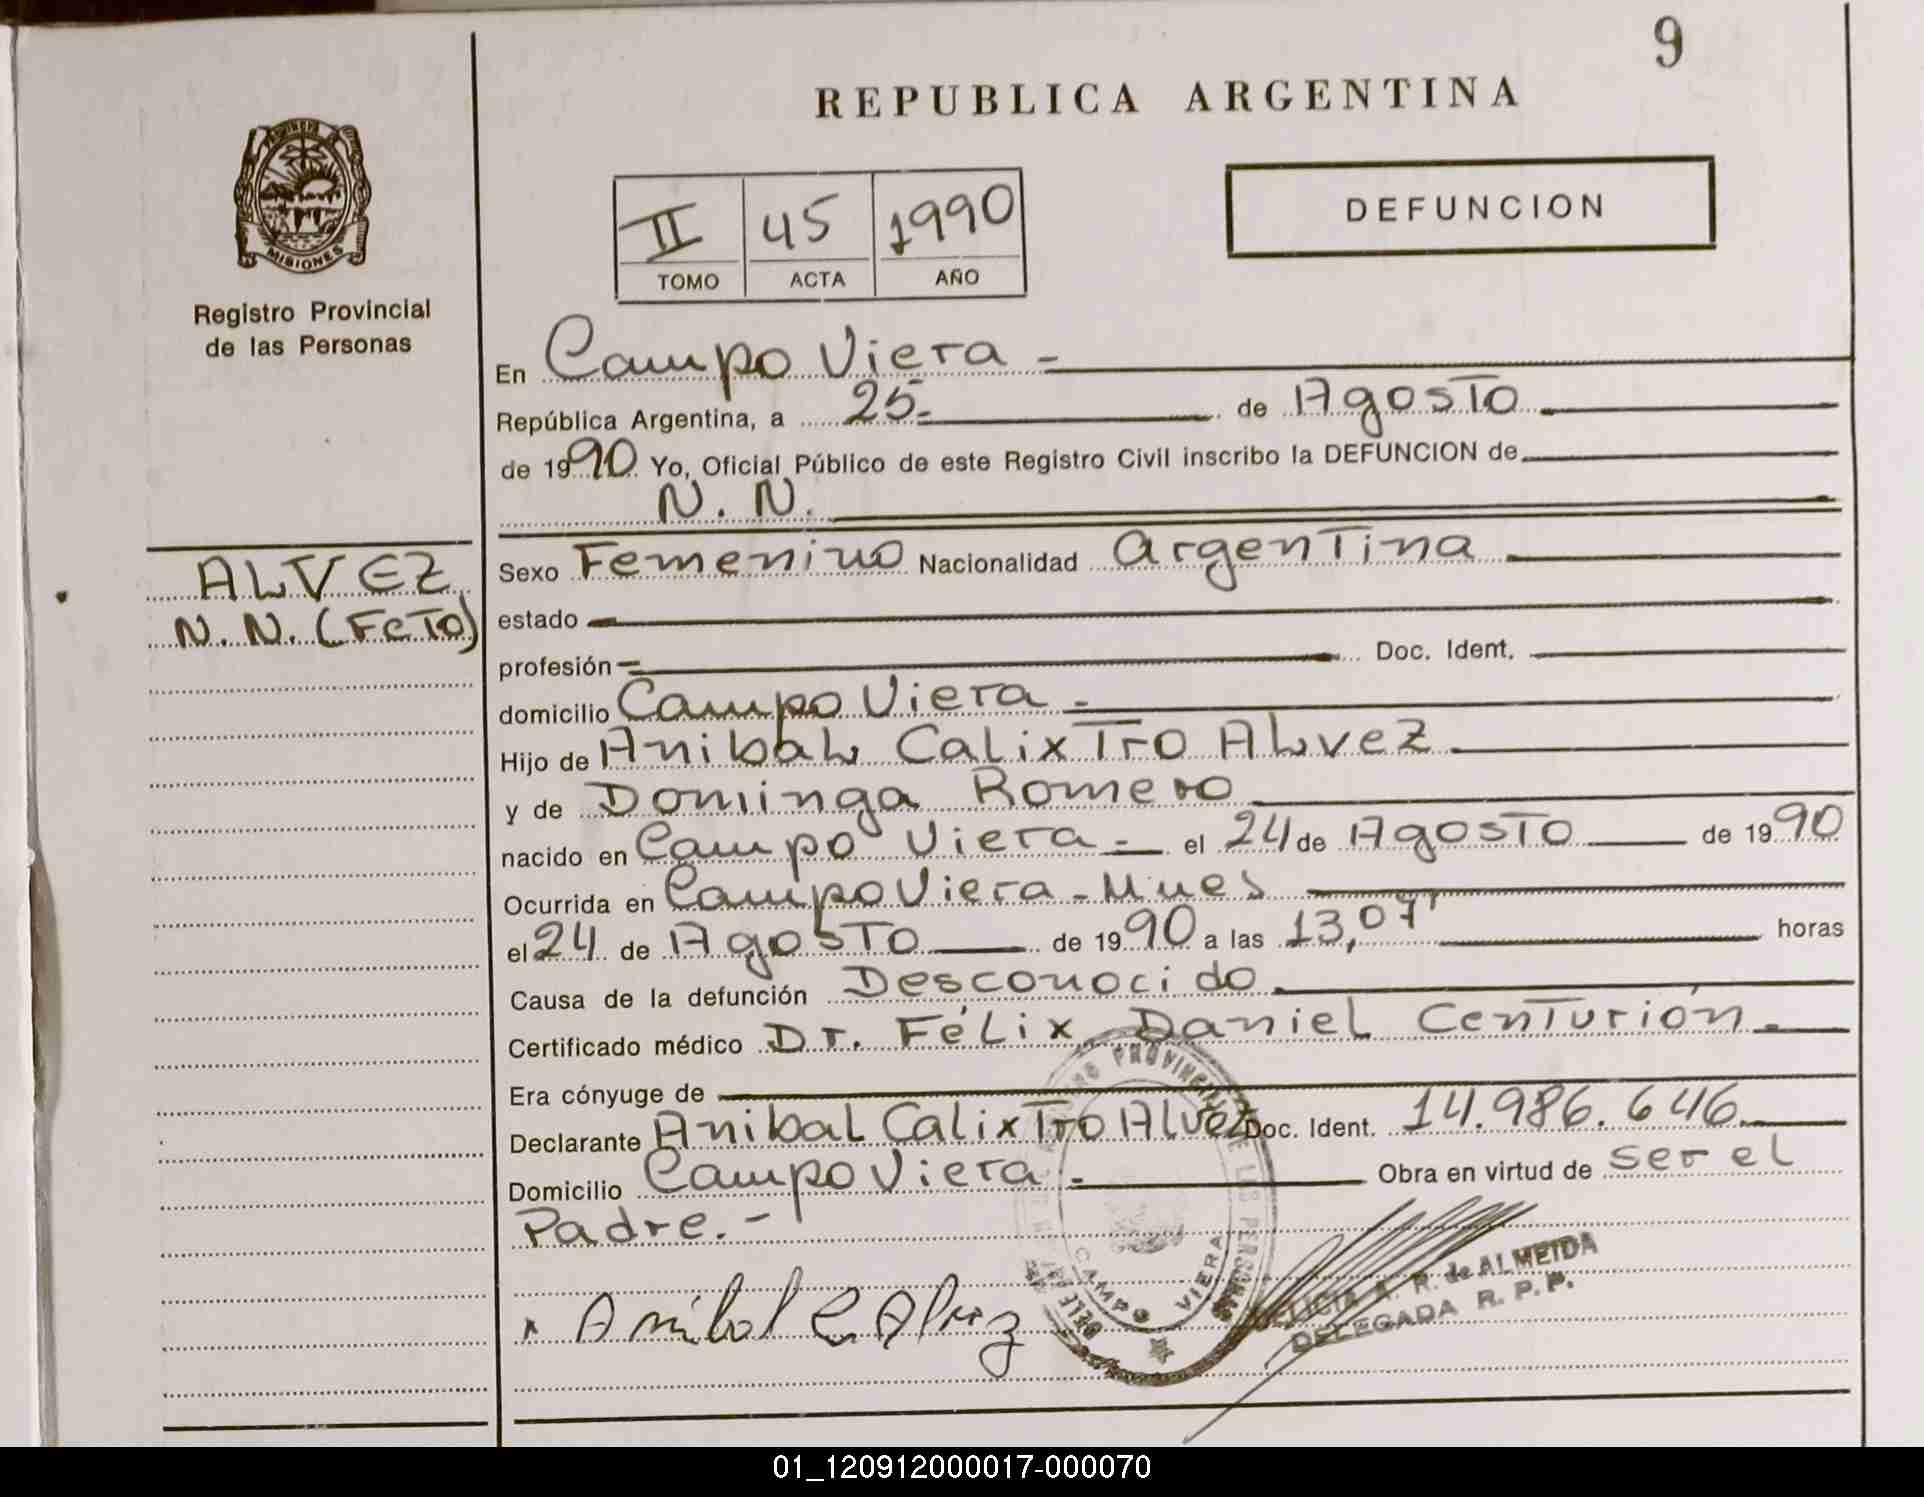 9
REPUBLICA ARGENTINA
MISIONES
Registro Provincial
de las Personas
II 45 1990
TOMO ACTA AÑO
DEFUNCION
En Campo Viera -
República Argentina, a 25- de Agosto
de 1990 Yo, Oficial Público de este Registro Civil inscribo la DEFUNCION de
N. N.
ALVEZ
N. N. (FeTo)
Sexo Femenino Nacionalidad Argentina
estado
profesión Doc. Ident.
domicilio Campo Viera -
Hijo de Anibal Calixtro Alvez
y de Dominga Romero
nacido en Campo Viera - el 24 de Agosto de 1990
Ocurrida en Campo Viera - Mnes
el 24 de Agosto de 1990 a las 13,07' horas
Causa de la defunción Desconocido
Certificado médico Dr. Félix Daniel Centurión -
Era cónyuge de
Declarante Anibal Calixtro Alvez Doc. Ident. 14.986.646
Domicilio Campo Viera - Obra en virtud de ser el
Padre. -
PROVINCIAL DE LAS PERSONAS
CAMPO VIERA
x Anibal C. Alvez
A. R. de ALMEIDA
DELEGADA R. P. P.
01_120912000017-000070